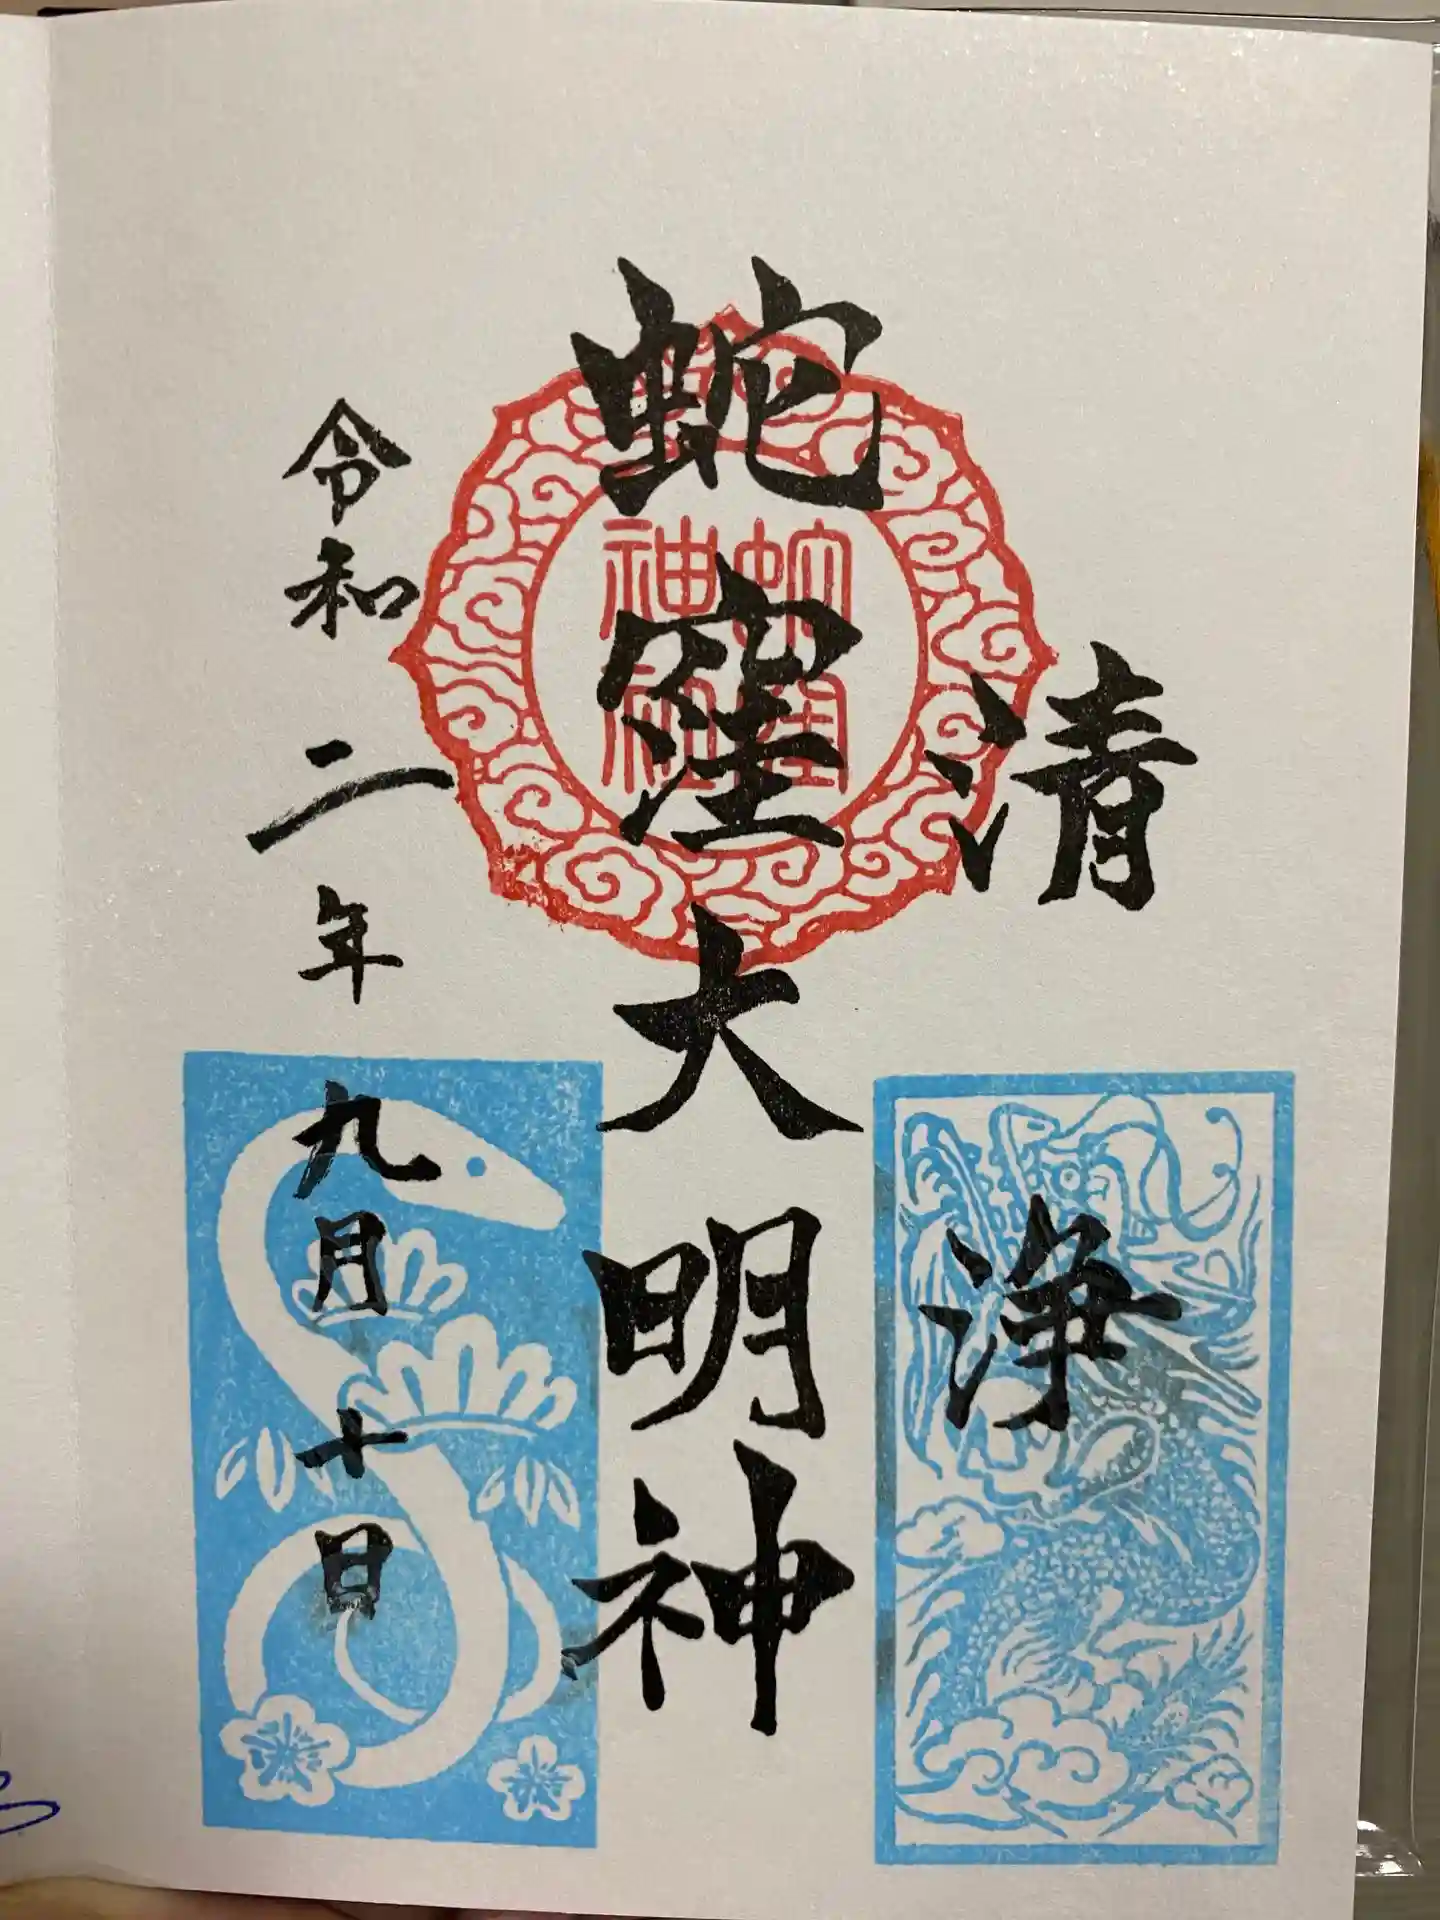 清浄
蛇窪大明神
蛇窪
神社
令和二年九月十日